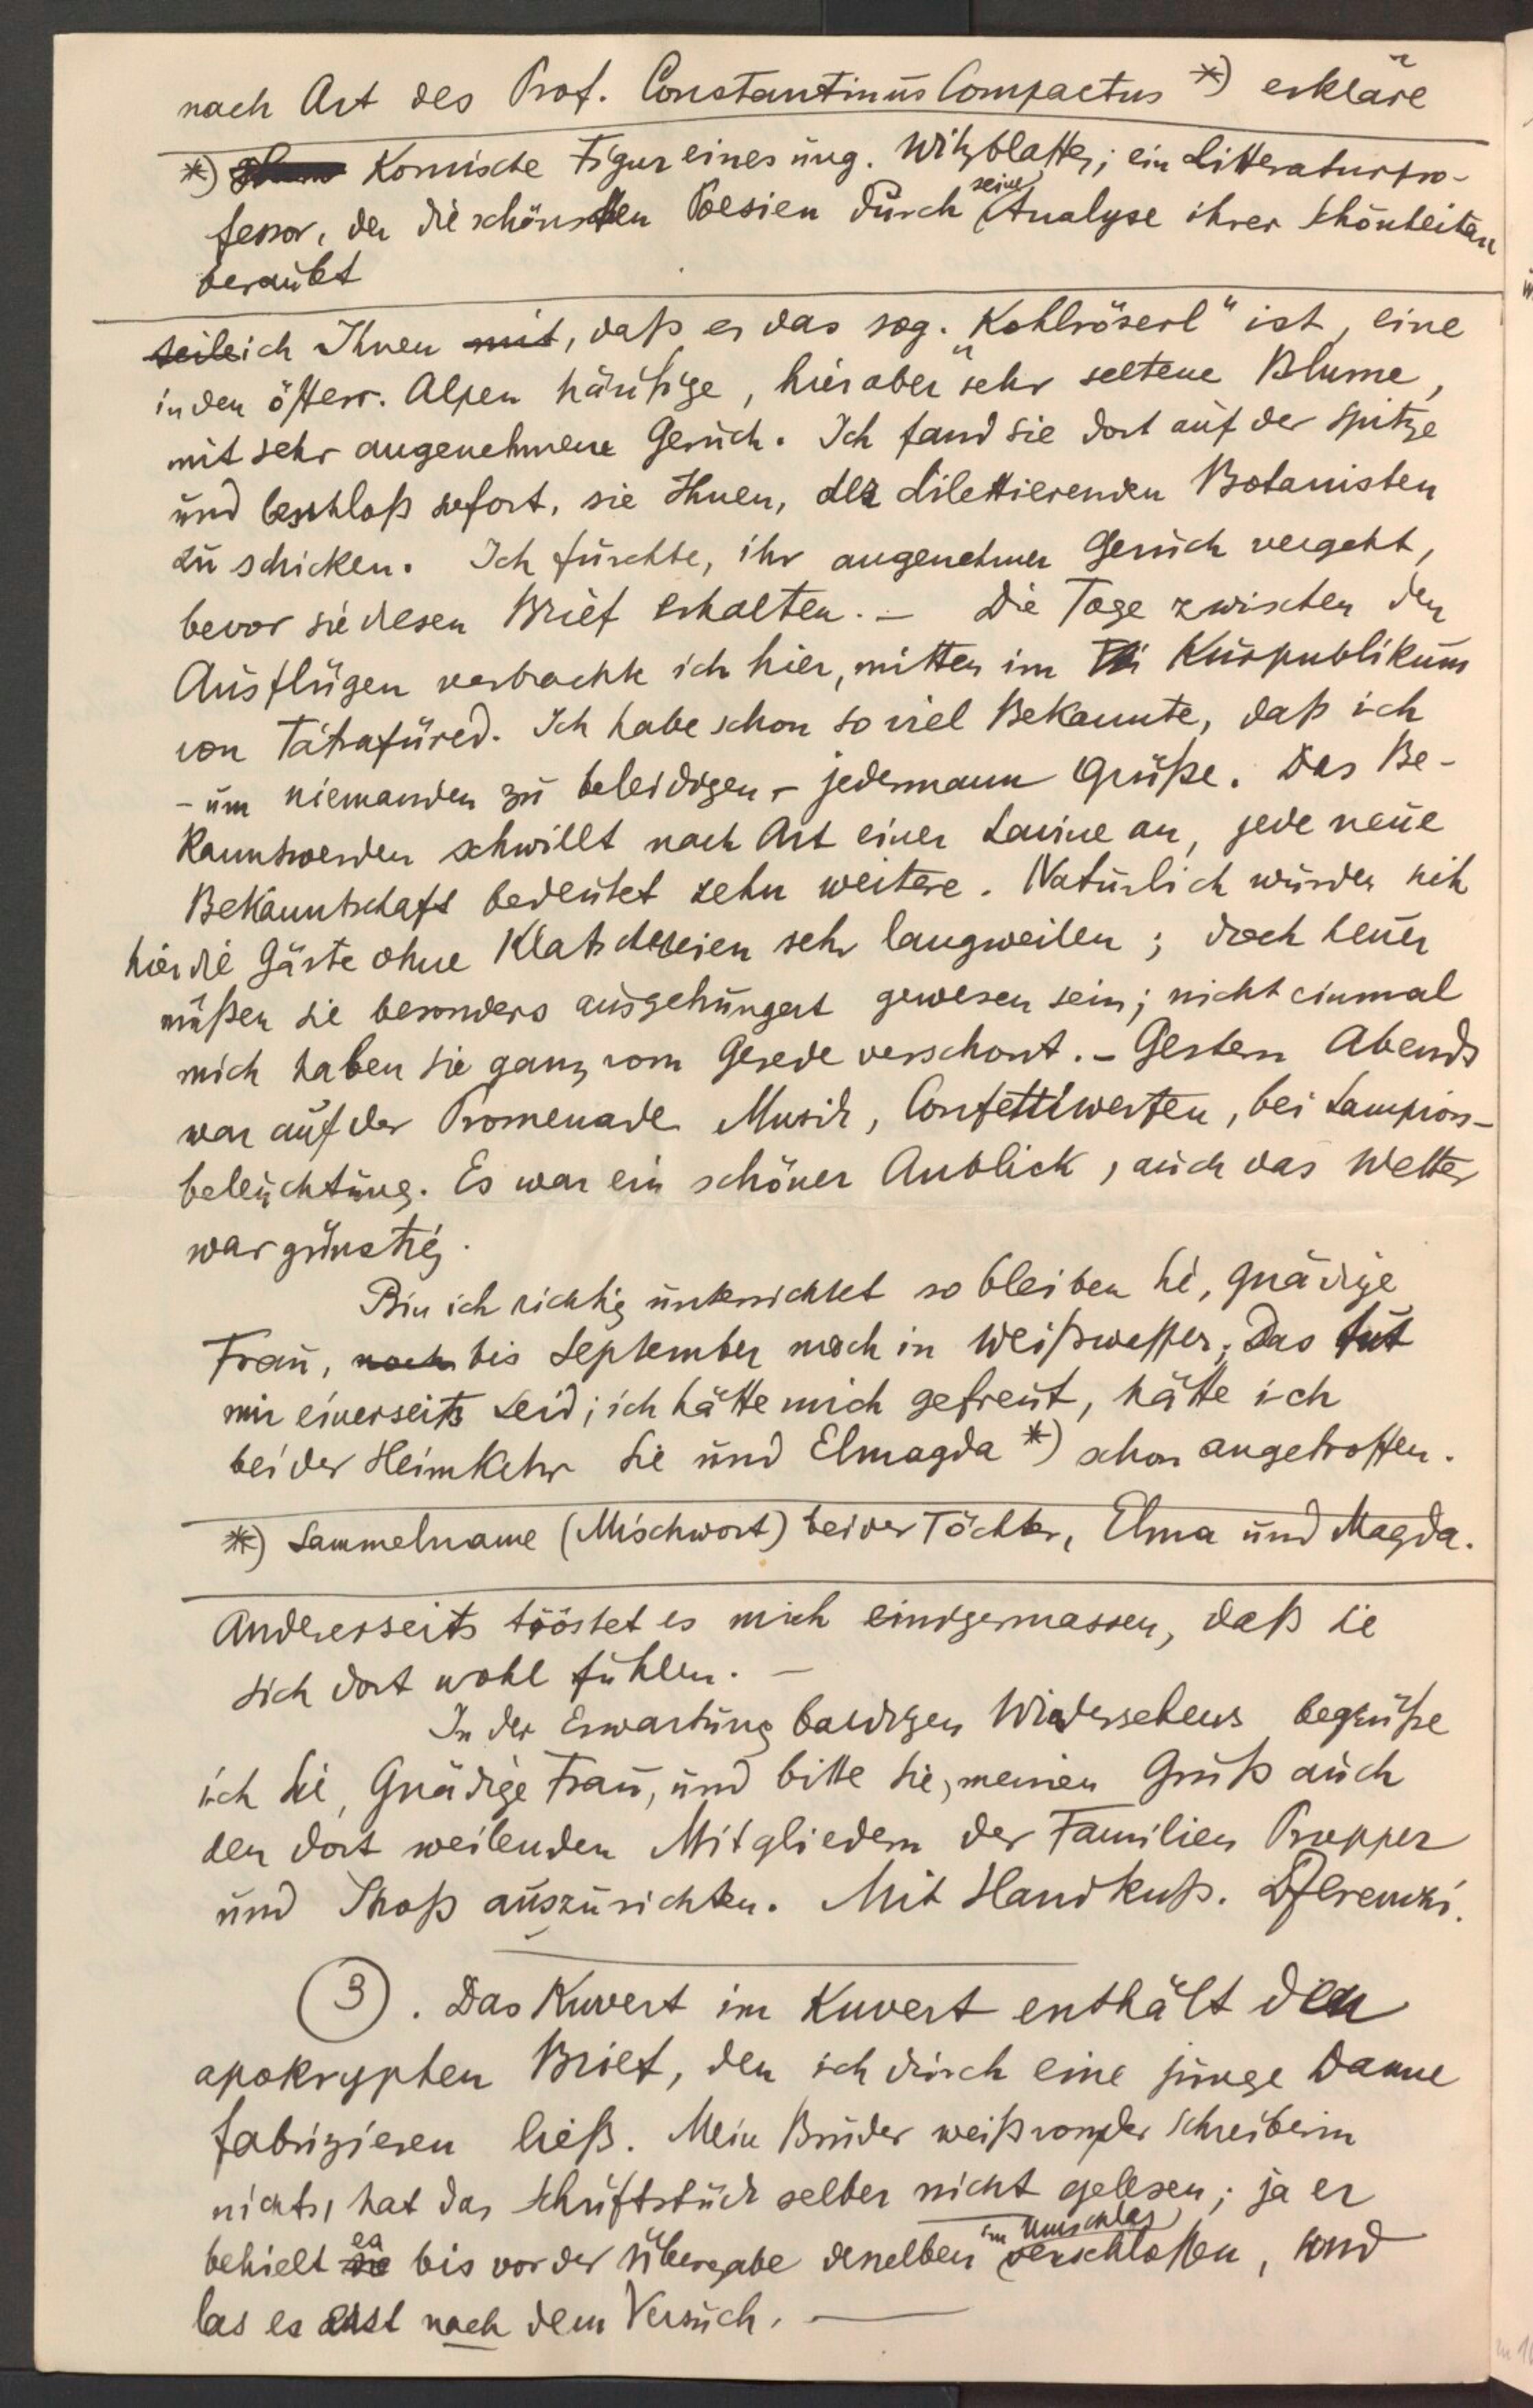 nach Art des Prof. Constantinus Compactus *) erkläre
*) Komische Figur eines ung. Witzblattes; ein Litteraturpro-
fessor, der die schönsten Poesien durch seine Analyse ihrer Schönheiten
beraubt
teile ich Ihnen mit, daß es das sog. „Kohlröserl" ist, eine
in den österr. Alpen häufige, hier aber sehr seltene Blume,
mit sehr angenehmem Geruch. Ich fand sie dort auf der Spitze
und beschloß sofort, sie Ihnen, der dilettierenden Botanisten
zu schicken. Ich fürchte, ihr angenehmer Geruch vergeht,
bevor sie diesen Brief erhalten. – Die Tage zwischen den
Ausflügen verbrachte ich hier, mitten im Kurpublikum
von Tátrafüred. Ich habe schon so viel Bekannte, daß ich
– um niemanden zu beleidigen – jedermann Grüße. Das Be-
kanntwerden schwillt nach Art einer Lavine an, jede neue
Bekanntschaft bedeutet zehn weitere. Natürlich würden sich
hier die Gäste ohne Klatschereien sehr langweilen; doch heuer
müßen sie besonders ausgehungert gewesen sein; nicht einmal
mich haben sie ganz vom Gerede verschont. – Gestern Abends
war auf der Promenade Musik, Confettiwerfen, bei Lampion-
beleuchtung. Es war ein schöner Anblick, auch das Wetter
war günstig.
Bin ich richtig unterrichtet so bleiben Sie, gnädige
Frau, noch bis September noch in Weißwasser; Das tut
mir einerseits Leid; ich hätte mich gefreut, hätte ich
bei der Heimkehr Sie und Elmagda *) schon angetroffen.
*) Sammelname (Mischwort) beider Töchter, Elma und Magda.
Andererseits tröstet es mich einigermassen, daß Sie
sich dort wohl fühlen. –
In der Erwartung baldigen Wiedersehens begrüße
ich Sie, Gnädige Frau, und bitte Sie, meinen Gruß auch
den dort weilenden Mitgliedern der Familien Propper
und Thoß auszurichten. Mit Handkuß. DrFerenczi.
(3). Das Kuvert im Kuvert enthält den
apokryphen Brief, den ich durch eine junge Dame
fabrizieren ließ. Mein Bruder weiß von der Schreiberin
nichts, hat das Schriftstück selber nicht gelesen; ja er
behielt es bis vor der Übergabe denselben im Umschlag verschlossen, und
las es erst nach dem Versuch. —